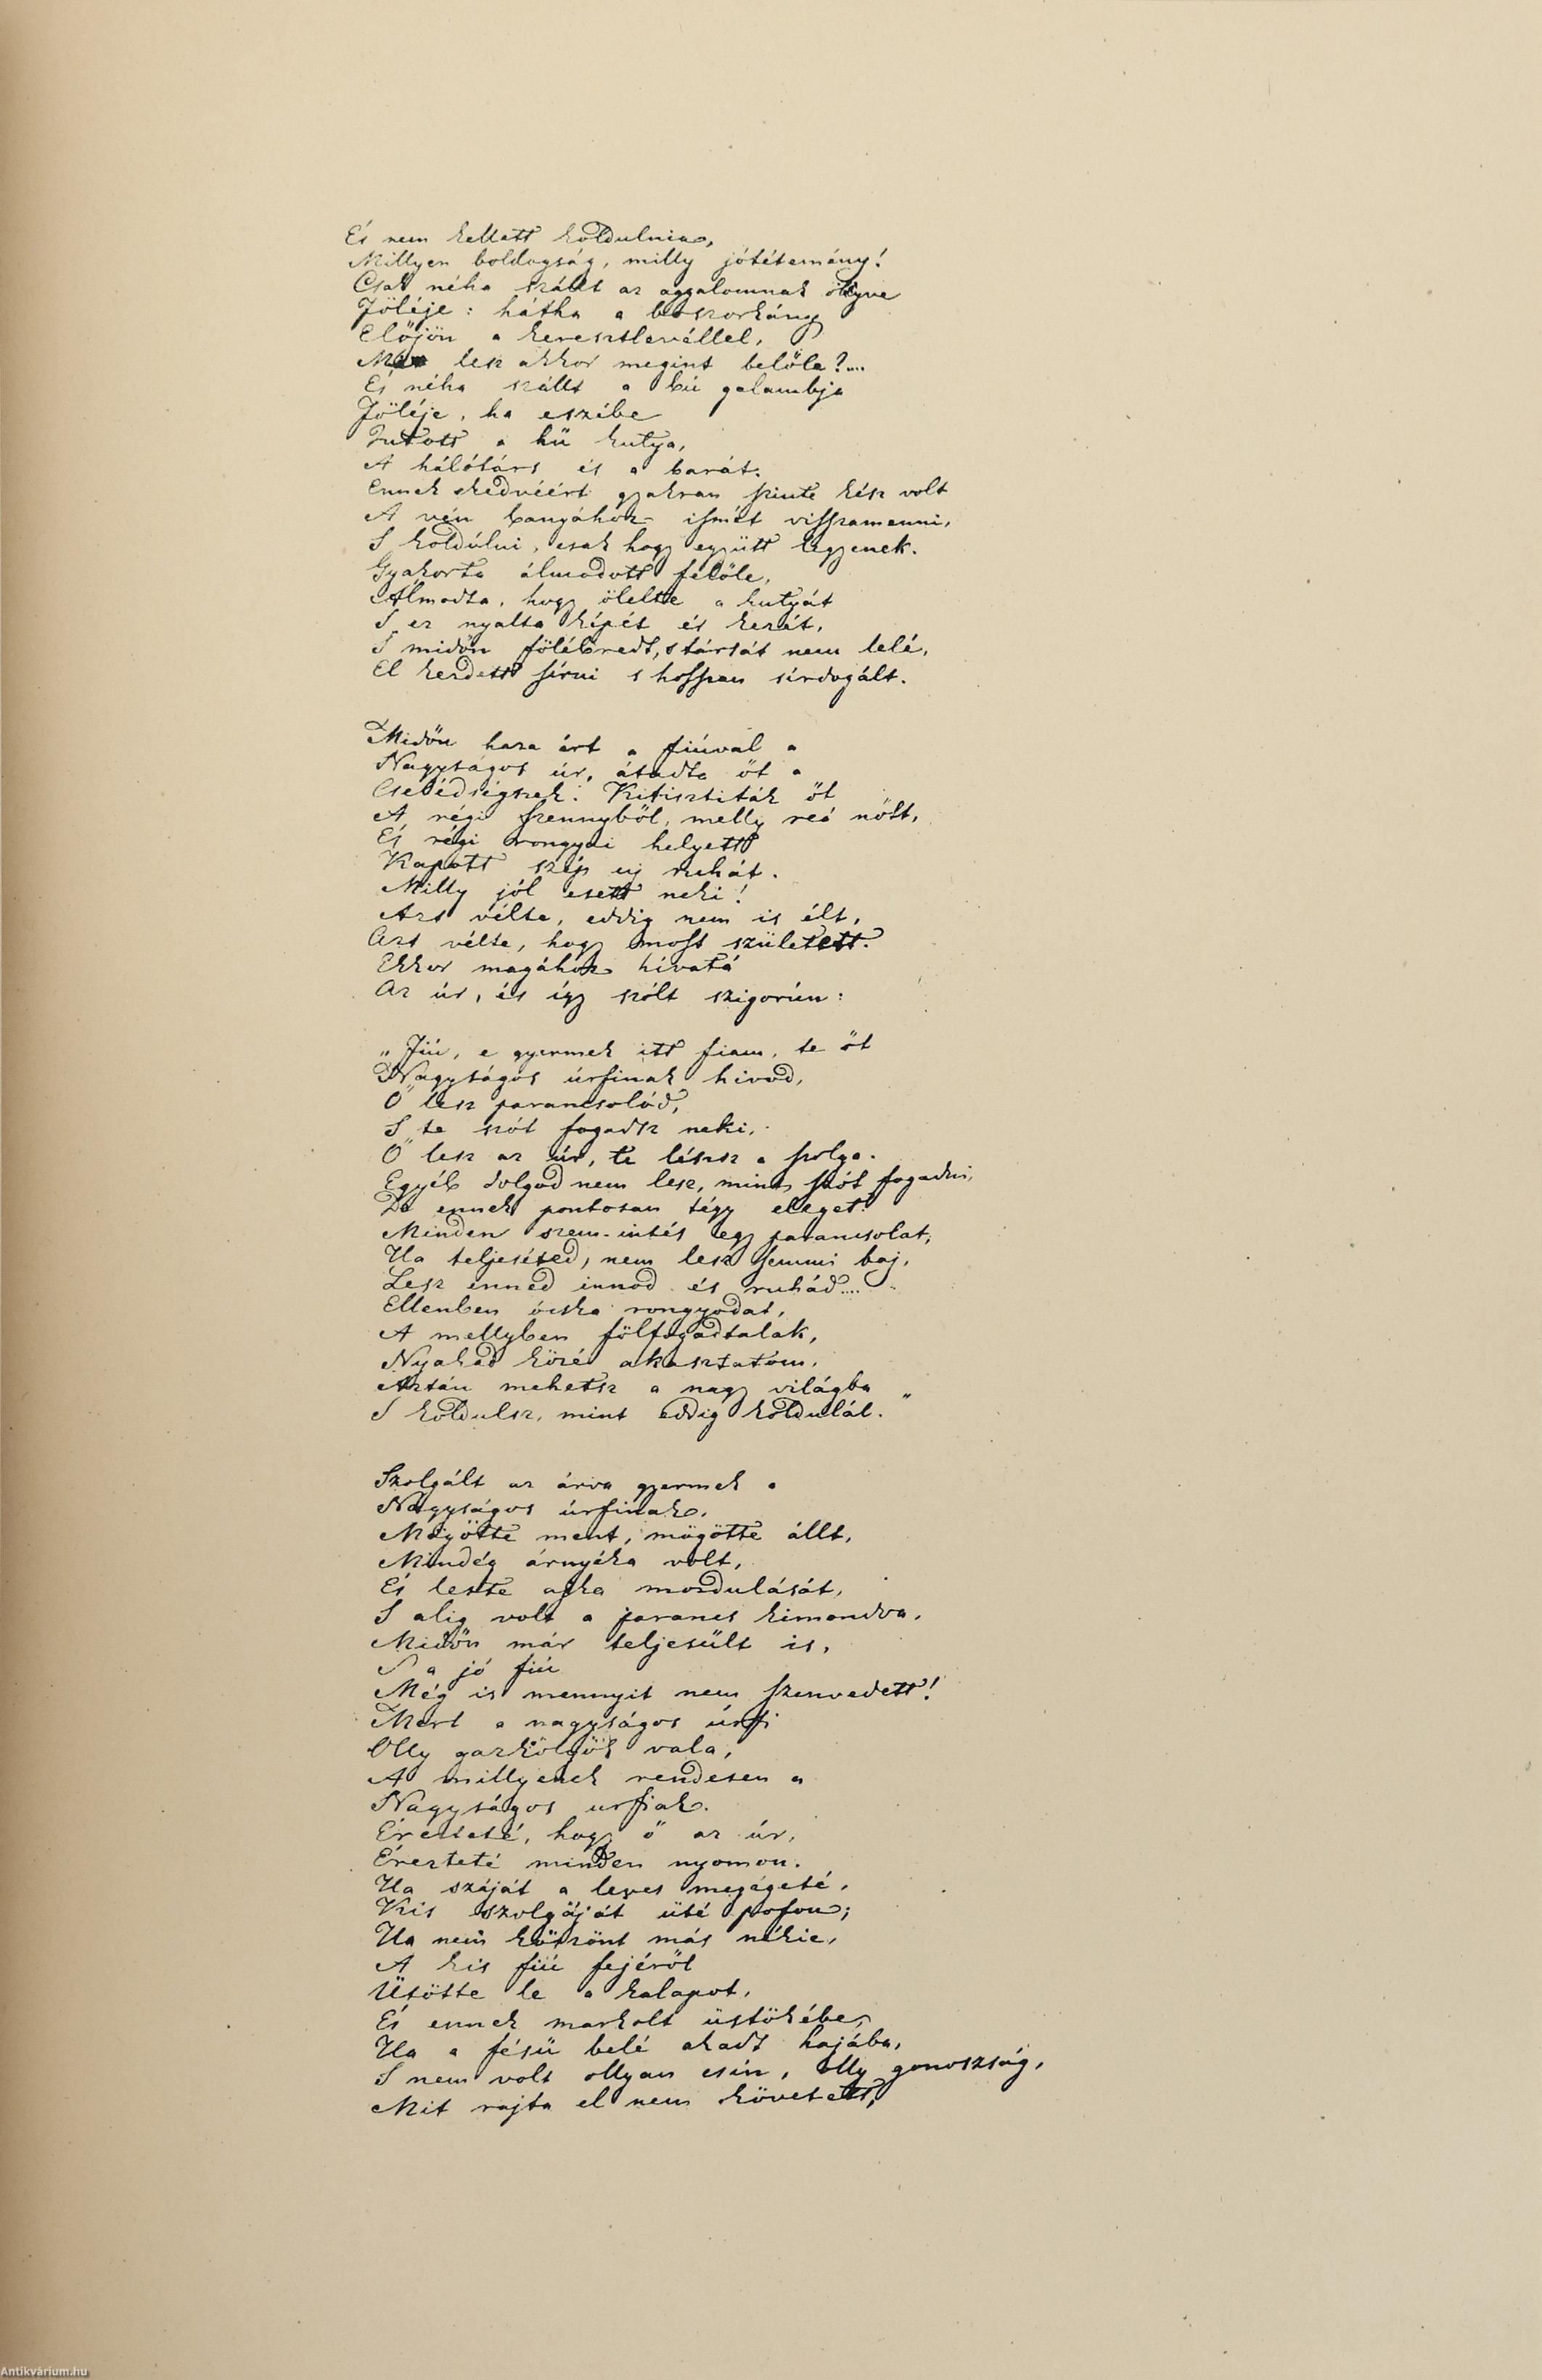 És nem kellett koldulnia,
Millyen boldogság, milly jótétemény!
Csak néha szállt az aggalomnak ölyve
Föléje: hátha a boszorkány
Előjön a keresztlevéllel,
lesz akkor megint belőle?....
És néha szállt a bú galambja
Föléje, ha eszébe
Jutott a hű kutya,
A hálótárs és a barát.
Ennek kedvéért gyakran szinte kész volt
A vén banyához ismét visszamenni,
S koldúlni, csak hogy együtt legyenek.
Gyakorta álmodott felőle,
Álmodta, hogy ölelte a kutyát
S ez nyalta képét és kezét,
S midőn fölébredt, s társát nem lelé,
El kezdett sírni s hosszan sírdogált.
Midőn haza ért a fiúval a
Nagyságos úr, átadta őt a
Cselédségnek. Kitisztiták őt
A régi szennyből, melly reá nőtt,
És régi rongyai helyett
Kapott szép uj ruhát.
Milly jól esett neki!
Azt vélte, eddig nem is élt,
Azt vélte, hogy most született.
Ekkor magához hívatá
Az úr, és így szólt szigorúen:
„Fiú, e gyermek itt fiam, te őt
Nagyságos úrfinak hivod,
Ő lesz parancsolód,
S te szót fogadsz neki,
Ő lesz az úr, te léssz a szolga.
Egyéb dolgod nem lesz, mint szót fogadni,
De ennek pontosan tégy eleget!
Minden szem-intés egy parancsolat,
Ha teljesíted, nem lesz semmi baj,
Lesz enned innod és ruhád....
Ellenben ócska rongyodat,
A mellyben fölfogadtalak,
Nyakad közé akasztatom,
Aztán mehetsz a nagy világba
S koldulsz, mint eddig koldulál."
Szolgált az árva gyermek a
Nagyságos úrfinak,
Mögötte ment, mögötte állt,
Mindég árnyéka volt,
És leste ajka mozdulását,
S alig volt a parancs kimondva,
Midőn már teljesült is,
S a jó fiú
Még is mennyit nem szenvedett!
Mert a nagyságos úrfi
Olly gazkölyök vala,
A millyenek rendesen a
Nagyságos urfiak.
Érezteté, hogy ő az úr,
Érezteté minden nyomon.
Ha száját a leves megégeté,
Kis szolgáját üté pofon;
Ha nem köszönt más nékie,
A kis fiú fejéről
Ütötte le a kalapot,
És ennek markolt üstökébe,
Ha a fésü belé akadt hajába,
S nem volt ollyan csín, olly gonoszság,
Mit rajta el nem követett,
Antikvárium.hu